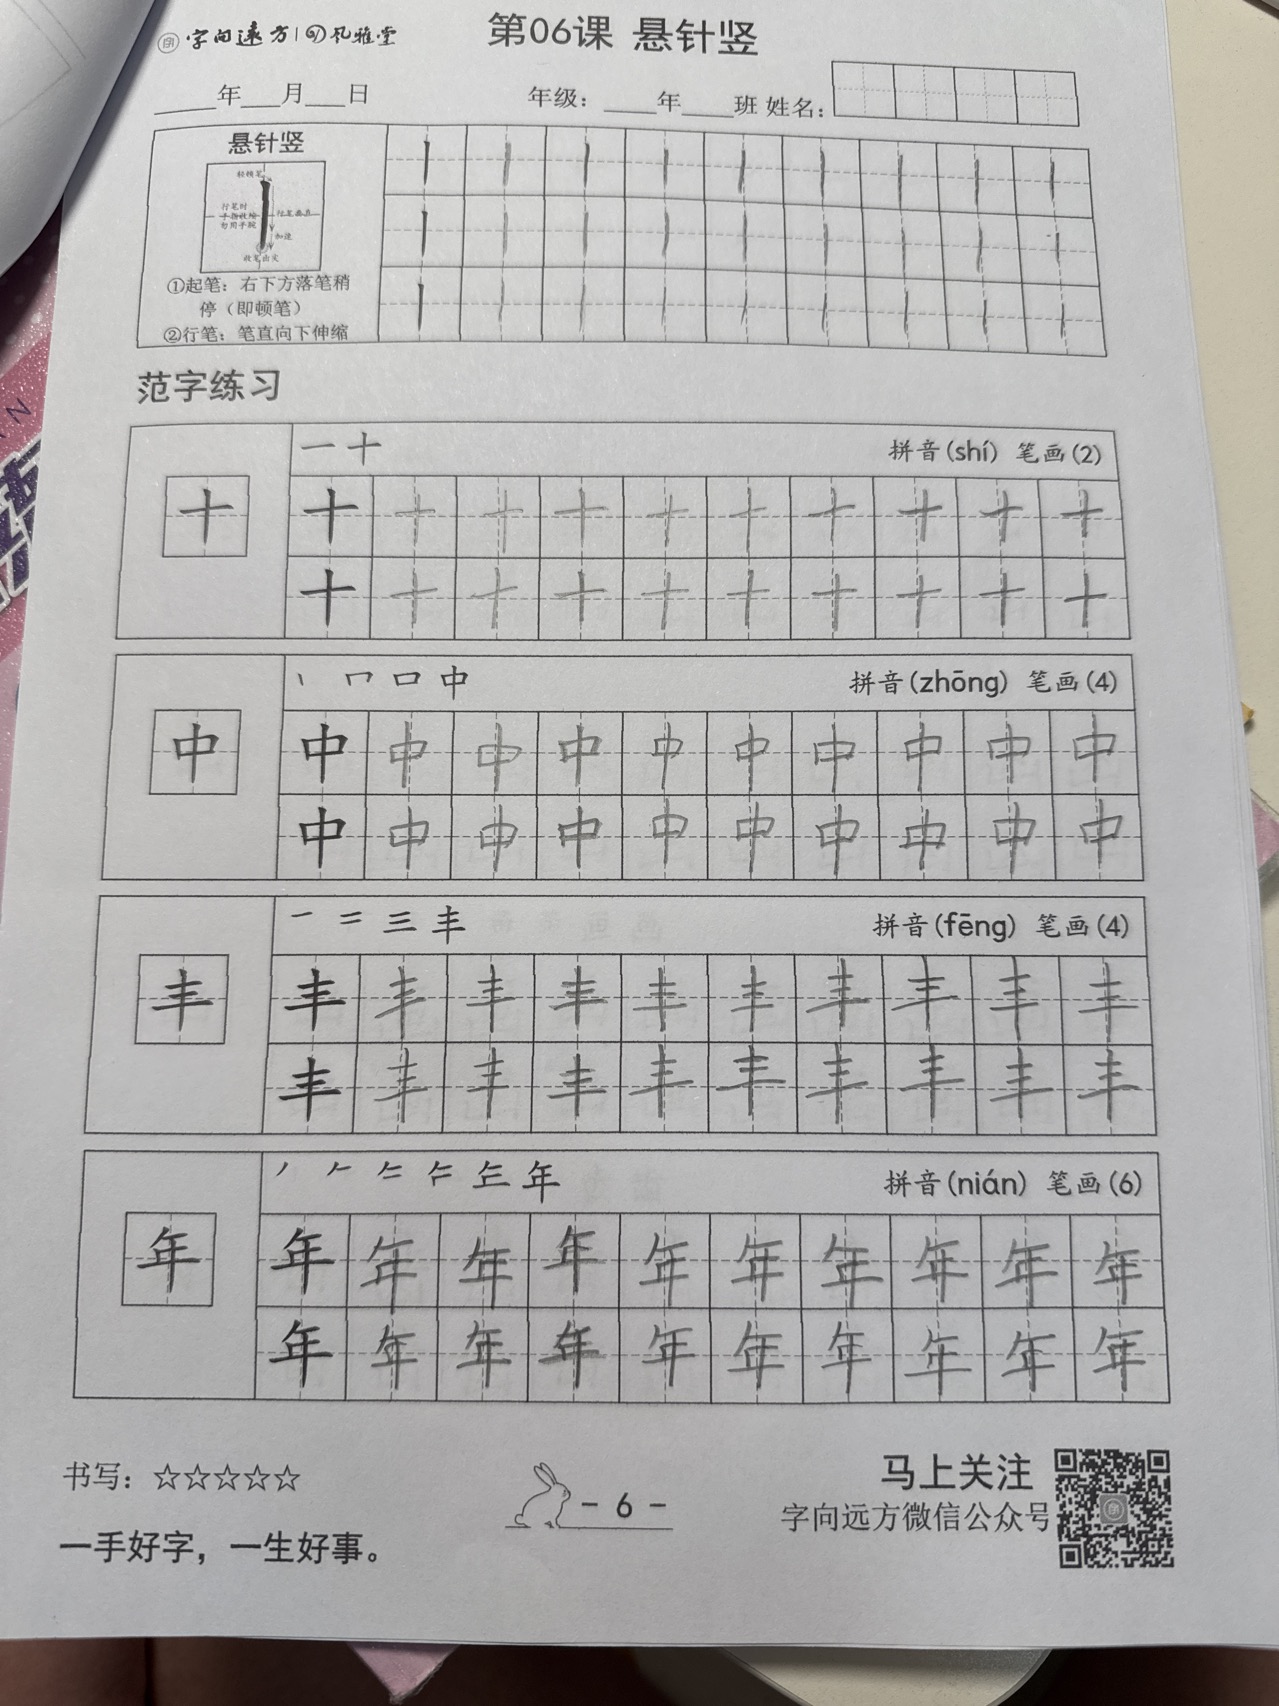 字向远方 | 风雅堂
第06课 悬针竖
____年___月___日 年级：____年____班 姓名：
悬针竖
轻顿笔
行笔时
手指收缩
勿用手腕
行笔垂直
加速
收笔出尖
①起笔：右下方落笔稍
停（即顿笔）
②行笔：笔直向下伸缩
范字练习
一 十 拼音(shí) 笔画(2)
十 十 十 十 十 十 十 十 十 十 十
十 十 十 十 十 十 十 十 十 十
丨 冂 口 中 拼音(zhōng) 笔画(4)
中 中 中 中 中 中 中 中 中 中 中
中 中 中 中 中 中 中 中 中 中
一 二 三 丰 拼音(fēng) 笔画(4)
丰 丰 丰 丰 丰 丰 丰 丰 丰 丰 丰
丰 丰 丰 丰 丰 丰 丰 丰 丰 丰
年 拼音(nián) 笔画(6)
年 年 年 年 年 年 年 年 年 年 年
年 年 年 年 年 年 年 年 年 年
书写：☆☆☆☆☆
一手好字，一生好事。
- 6 -
马上关注
字向远方微信公众号